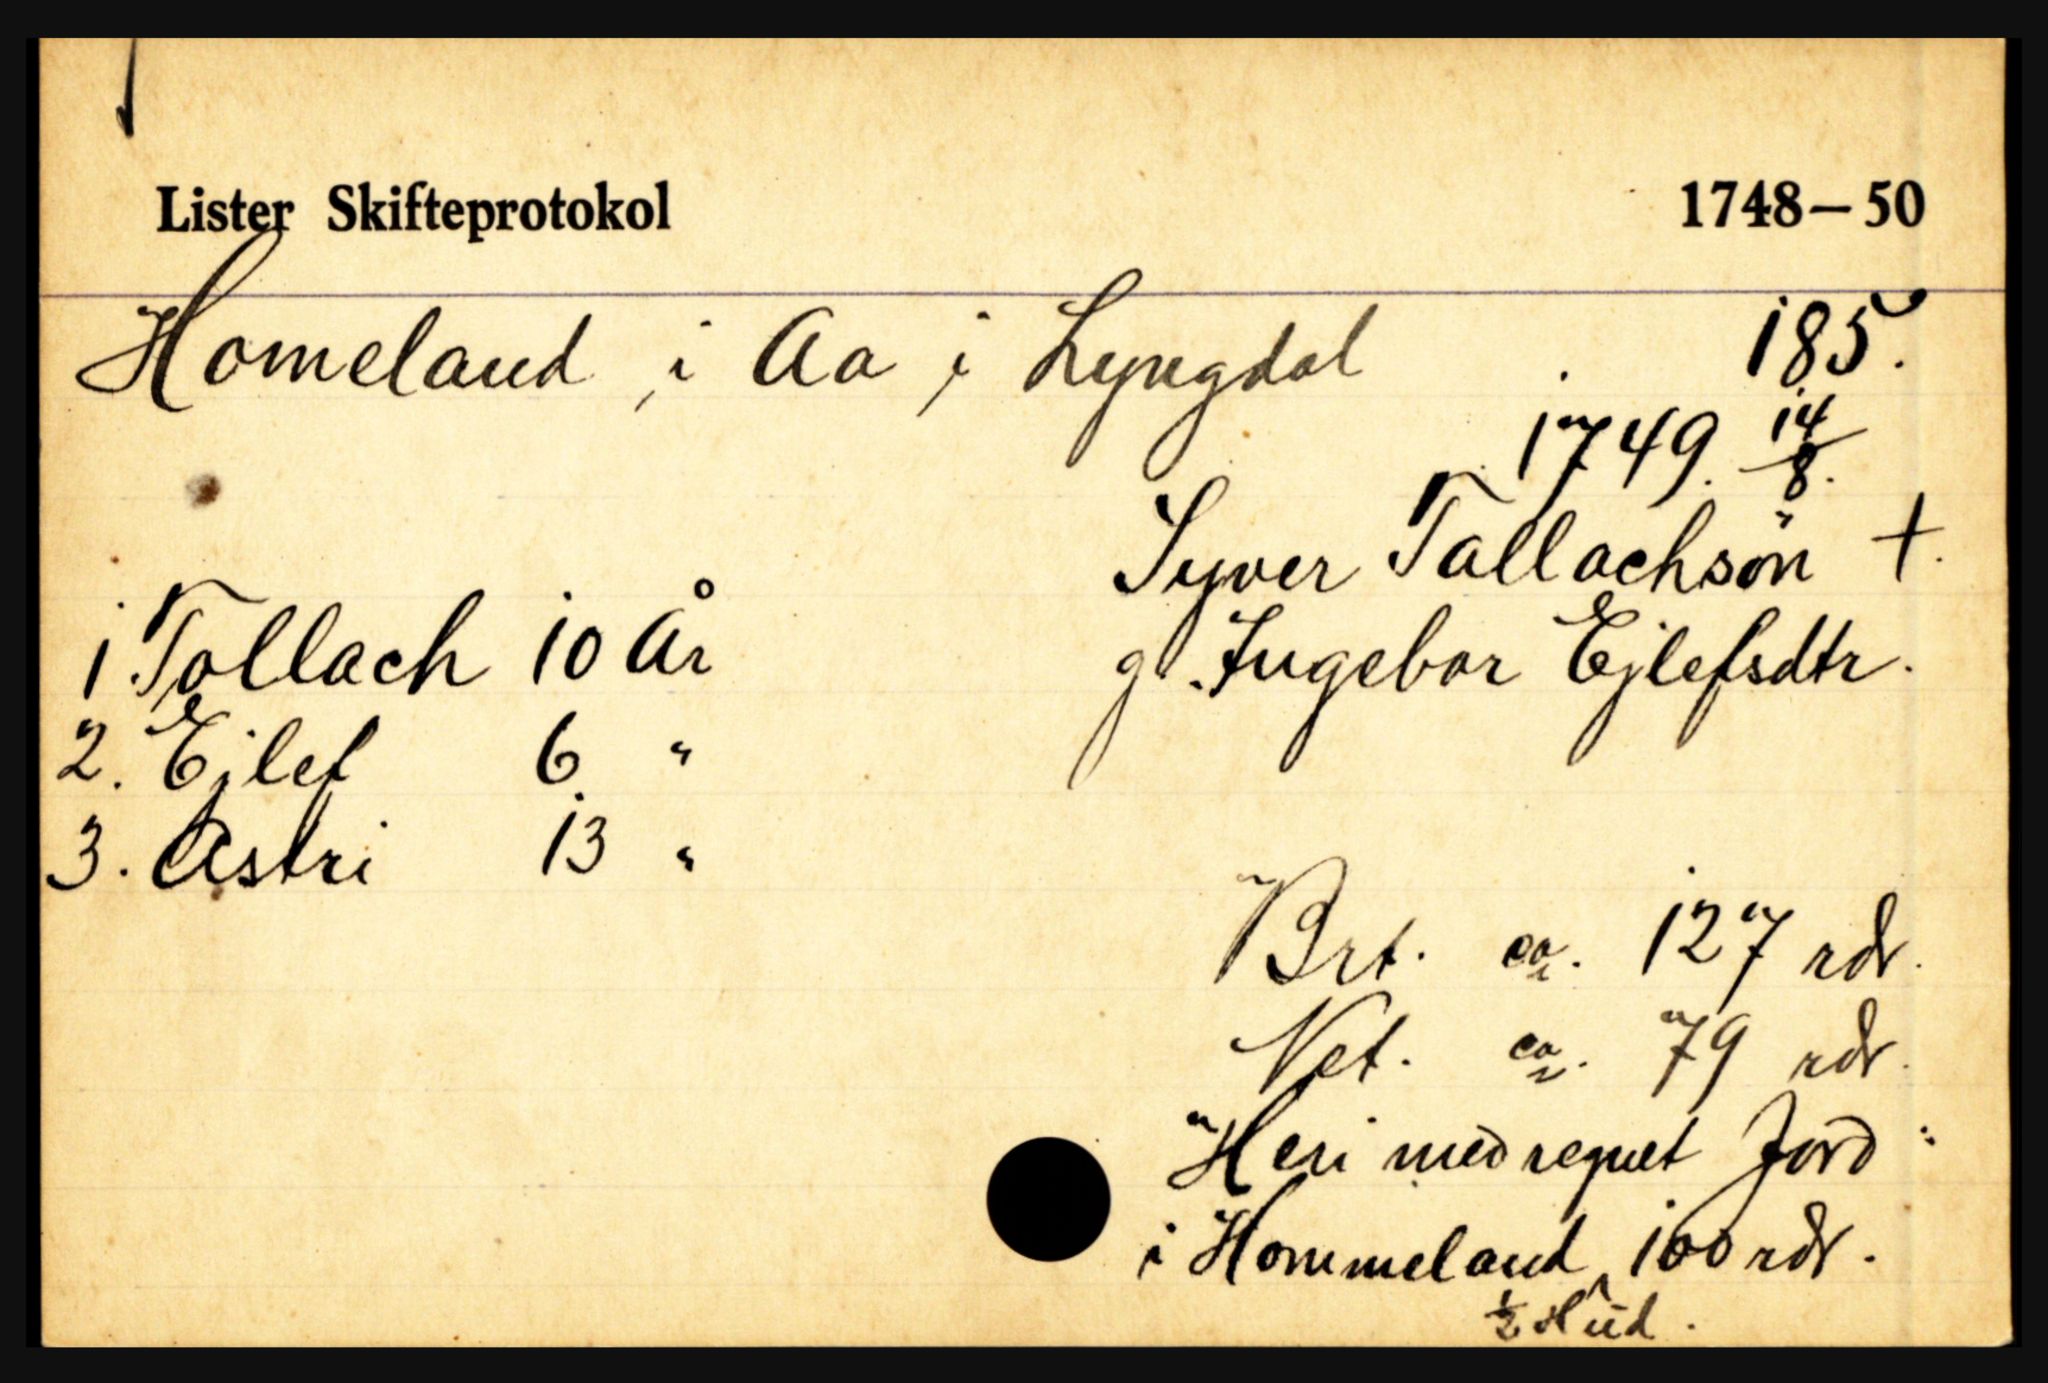 Lister Skifteprotokol 1748–50
Homeland i Aa i Lyngdal 185.
1749. 14/8.
Syver Tallachsön +.
1 Tollach 10 År g. Ingebor Ejlefsdtr.
2. Ejlef 6 "
3. Astri 13 "
Brt. ca. 127 rdr.
Net. ca. 79 rdr.
Heri medregnet Jord
i Hommeland 100 rdr.
½ Hud.